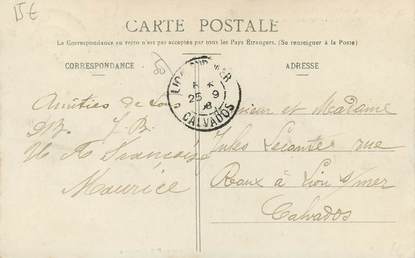 15€
CARTE POSTALE
La Correspondance au recto n'est pas acceptée par tous les Pays Étrangers. (Se renseigner à la Poste)
CORRESPONDANCE
ADRESSE
LION-SUR-MER
25 9
CALVADOS
Amitiés de
Monsieur et Madame
Jules Lecante rue
Françoise
Maurice
à Lion s/mer
Calvados